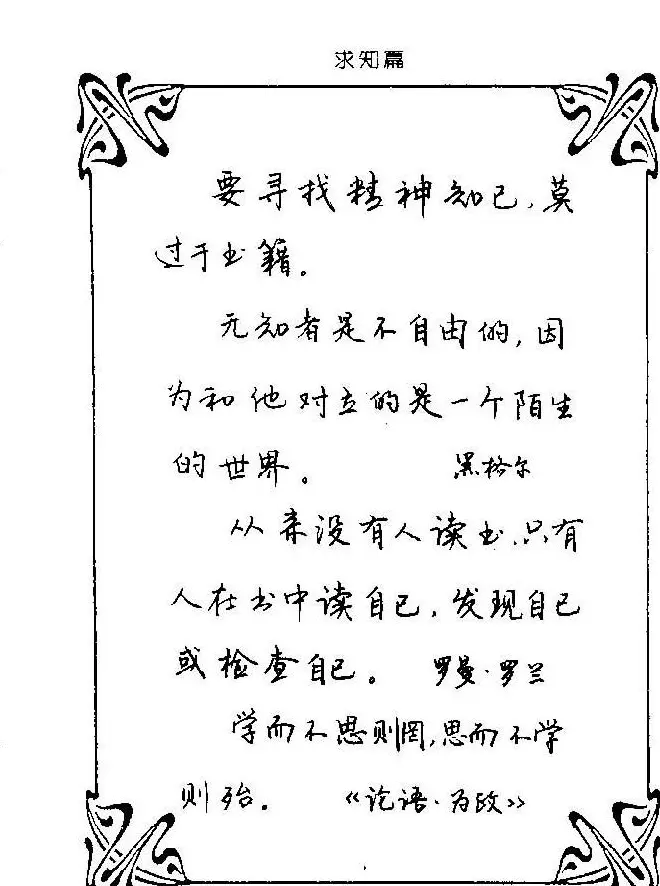 求知篇
要寻找精神知己，莫
过于书籍。
无知者是不自由的，因
为和他对立的是一个陌生
的世界。 黑格尔
从来没有人读书，只有
人在书中读自己，发现自己
或检查自己。 罗曼·罗兰
学而不思则罔，思而不学
则殆。 《论语·为政》